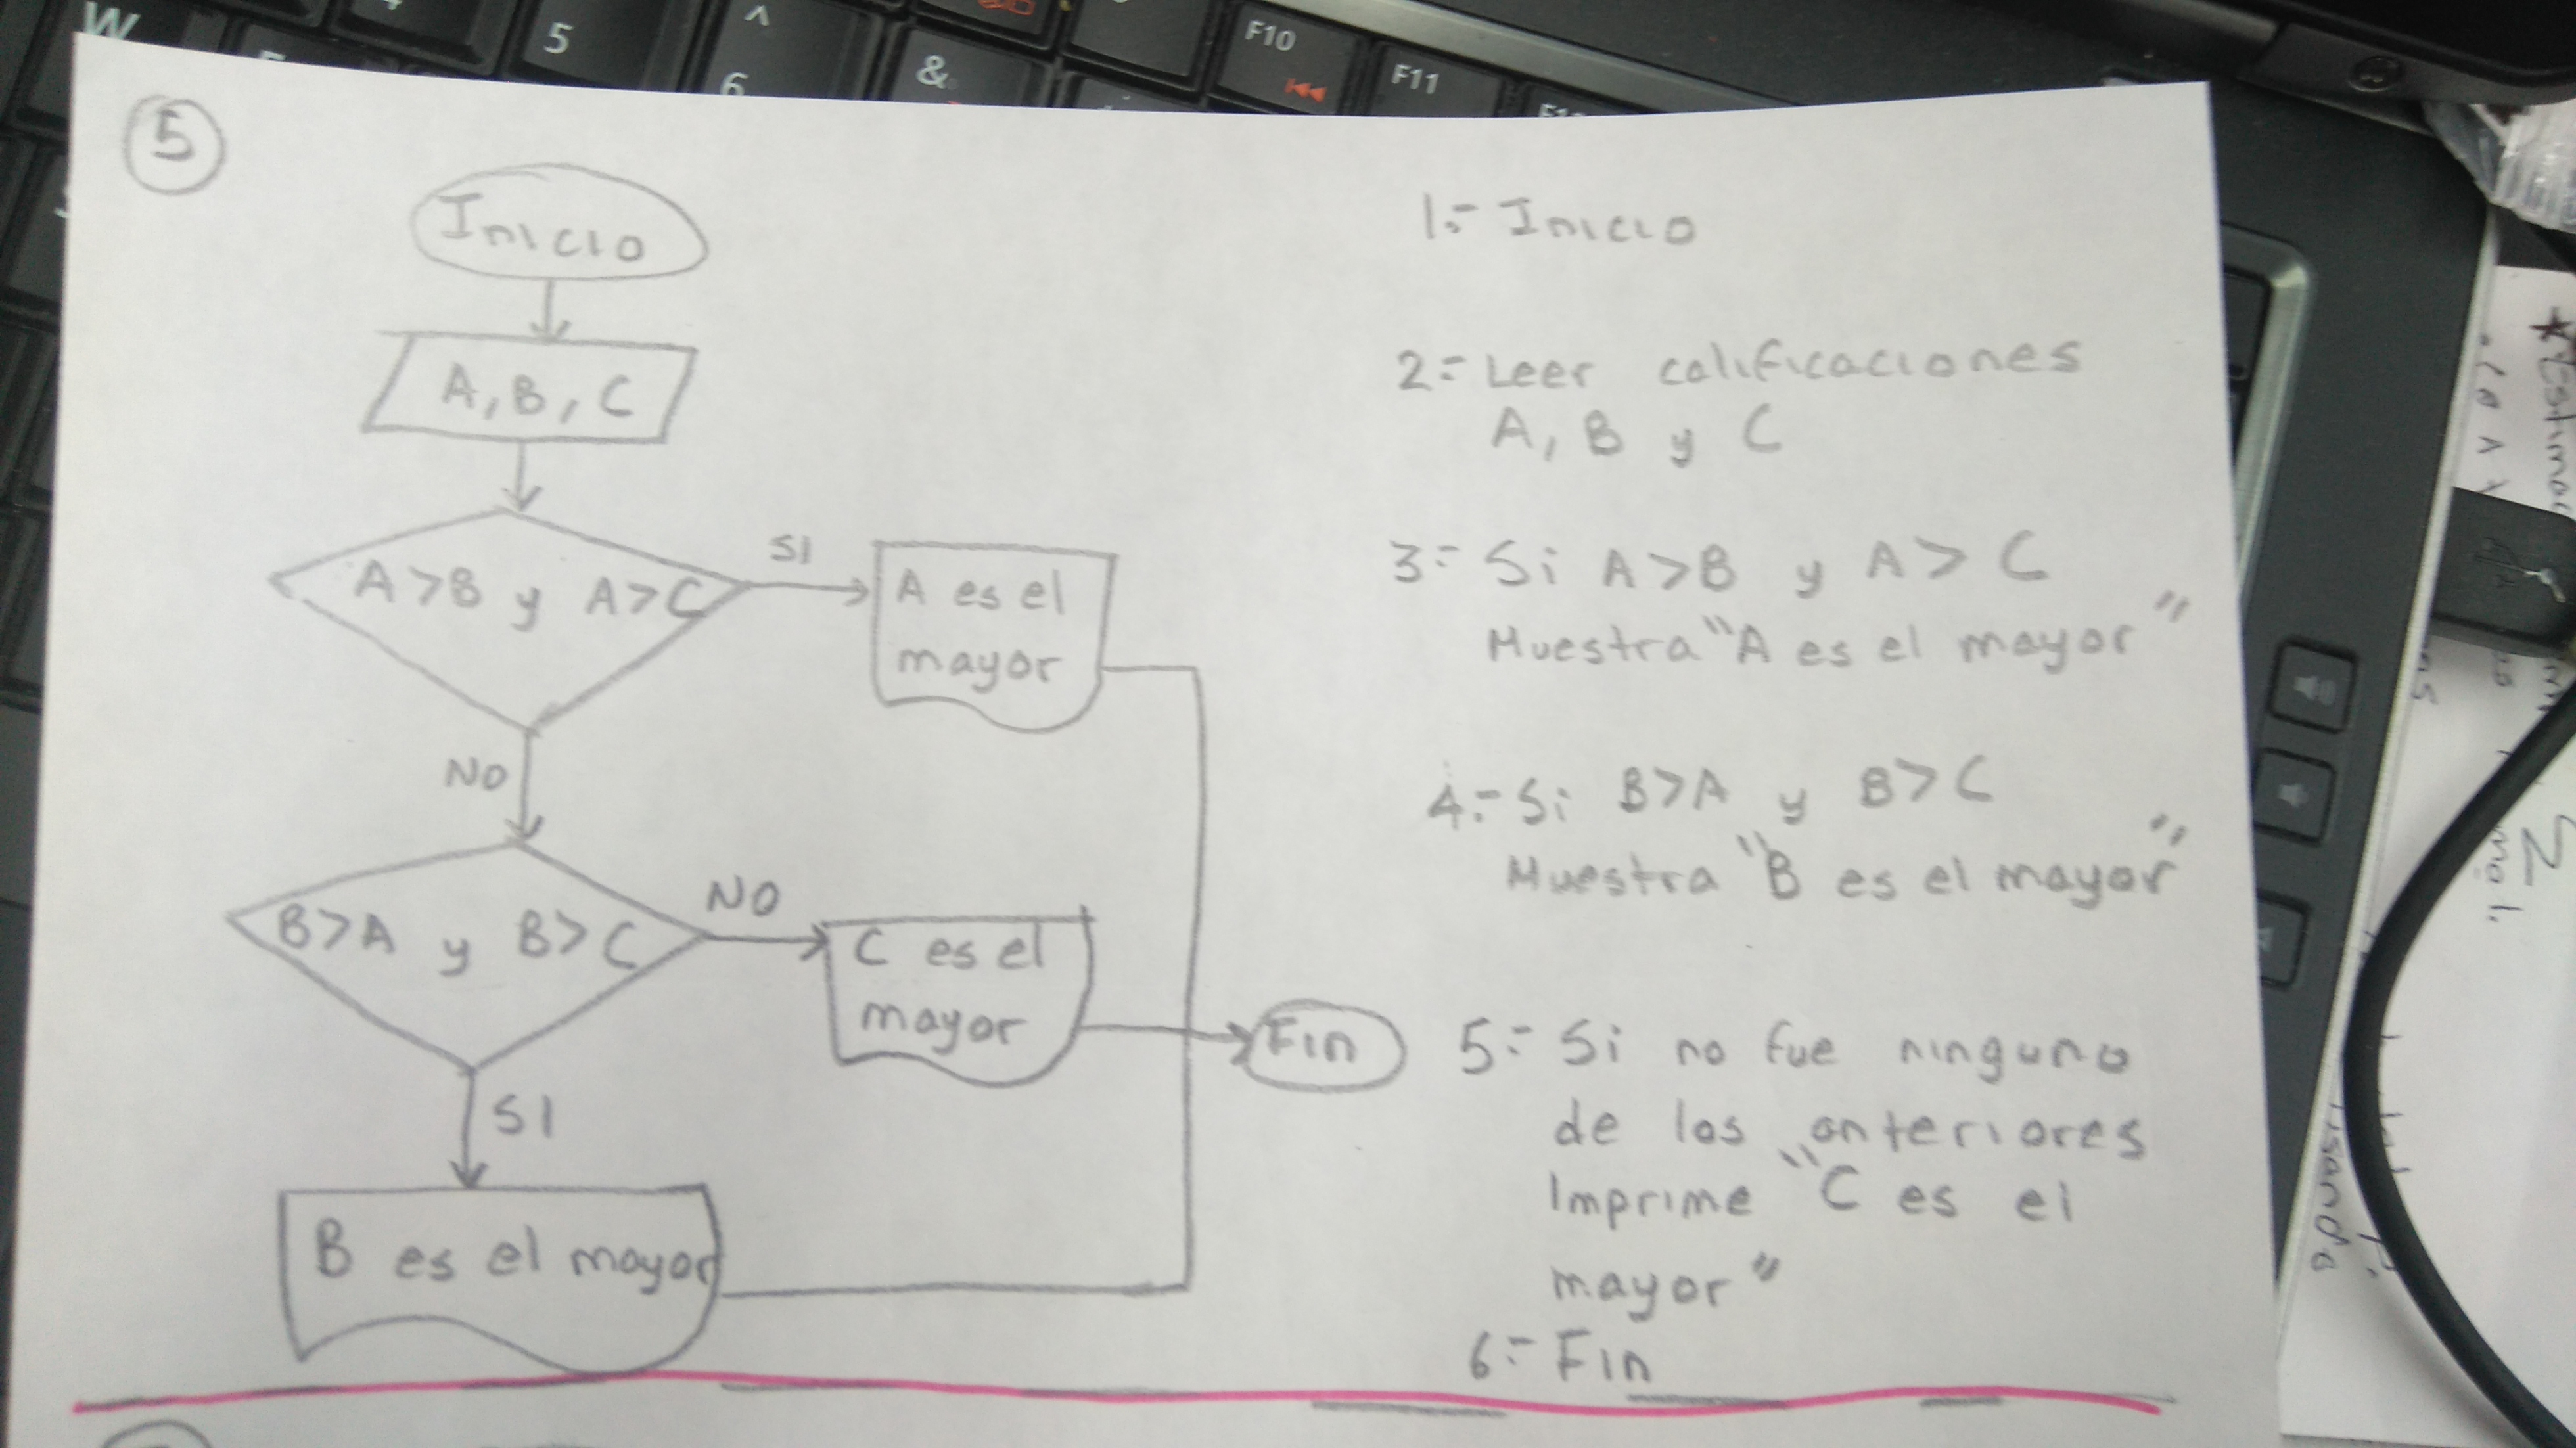 W
5
^
6
&
F10
F11
5
Inicio
A, B, C
A>B y A>C
SI
A es el
mayor
NO
B>A y B>C
NO
C es el
mayor
Fin
SI
B es el mayor
1.- Inicio
2.- Leer calificaciones
A, B y C
3.- Si A>B y A>C
Muestra "A es el mayor"
4.- Si B>A y B>C
Muestra "B es el mayor"
5.- Si no fue ninguno
de los anteriores
Imprime "C es el
mayor"
6.- Fin